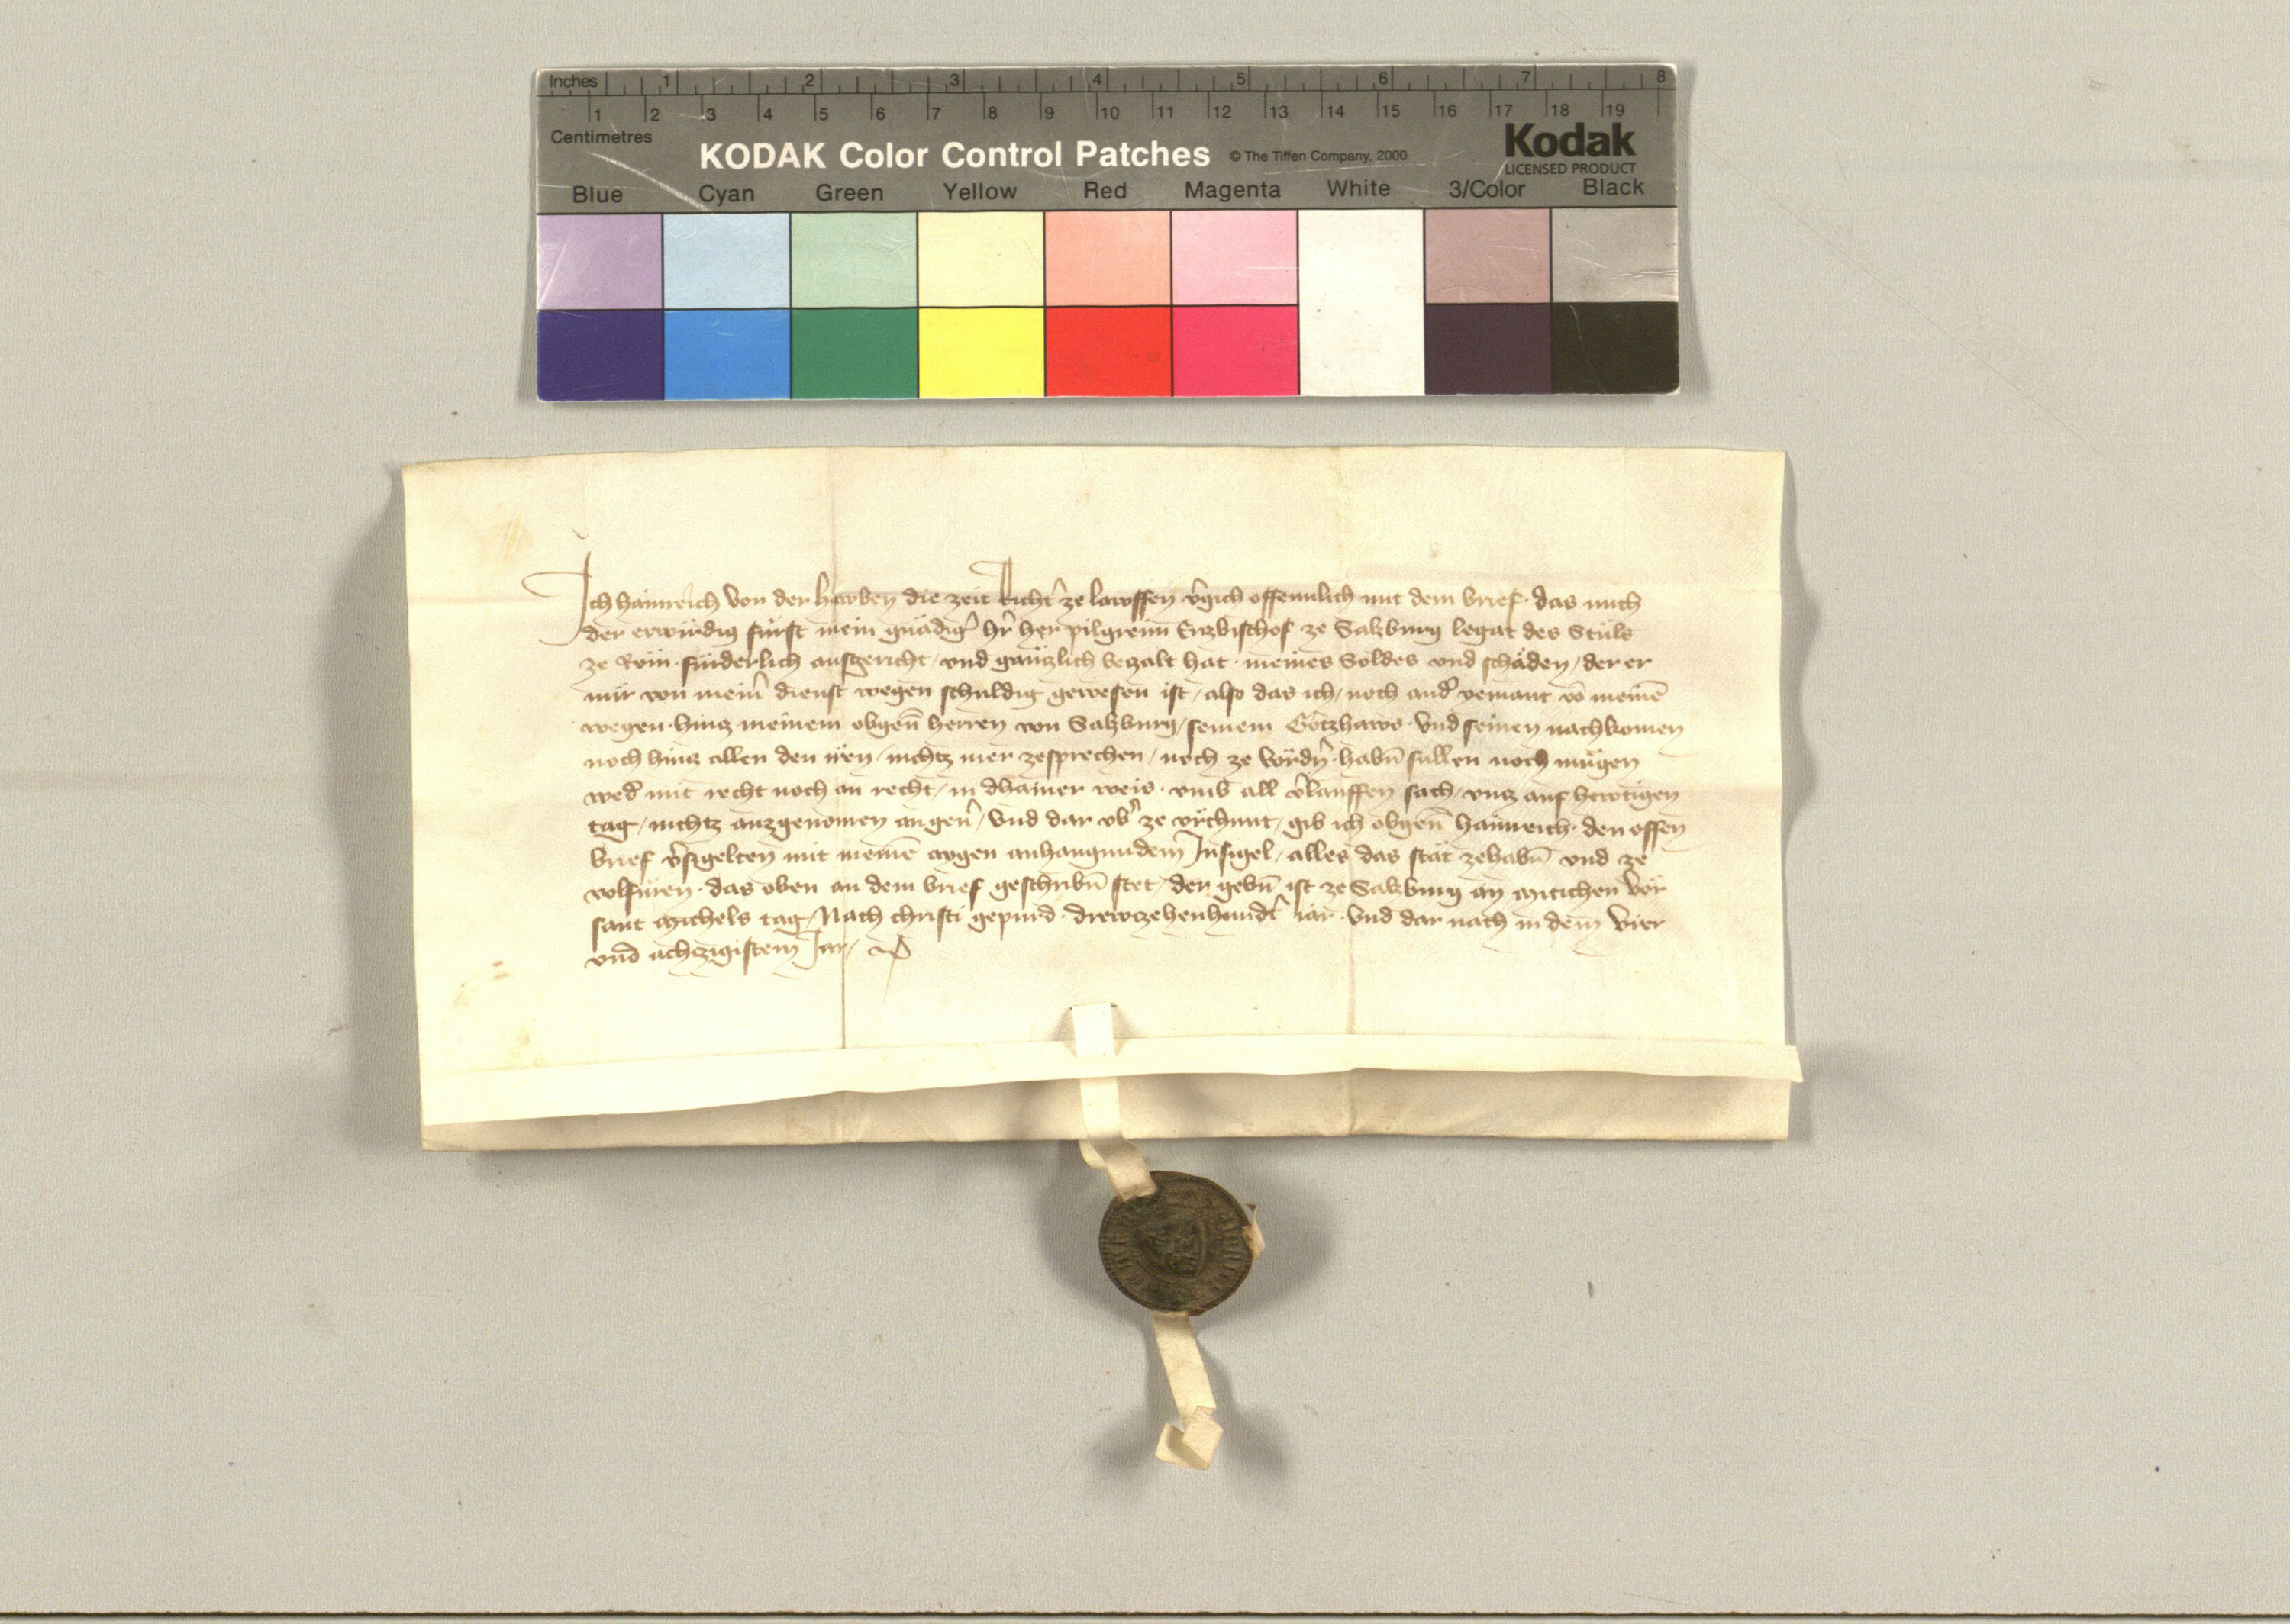 Inches 1 2 3 4 5 6 7 8
1 2 3 4 5 6 7 8 9 10 11 12 13 14 15 16 17 18 19
Centimetres
KODAK Color Control Patches © The Tiffen Company, 2000 Kodak
LICENSED PRODUCT
Blue Cyan Green Yellow Red Magenta White 3/Color Black
Ich hainreich von der die zeit Richt̉ ze lawffen v̉gich offennlich mit dem brief · das mich
der erwirdig fürst mein gnädig̉ hr̉ her pilgreim Erzbischof ze Salzburg legat des Stuls
ze Rom · fürderlich ausgericht / vnd gäntzlich bezalt hat · meines Soldes vnd schäden / der er
mir von meim̄ dienst wegen schuldig gewesen ist / also das ich / noch and̉ yemant vō meinē
wegen · hintz meinem obgen̄ herren von Salzburg / seinem Gotzhaws · vnd seinen nachkomen
noch hintz allen den iren / nichtz mer zesprechen / noch ze vordn̉ · habn̄ sullen noch mügen
wed̉ mit recht noch an recht / in dhainer weis · vmb all v̉lauffen sach / vntz auf hewtigen
tag / nichtz auzgenomen an gen̉ / vnd dar vb̉ ze vrchunt / gib ich obgen̄ hainreich · den offen
brief v̉sigelten mit meinē aygen anhangundem Insigel / alles das stät zehabn̄ vnd ze
volfüren · das oben an dem brief geschribn̄ stet / der gebn̄ ist ze Salzburg an mitichen vor
sant Michels tag / Nach christi gepurd · drewzehenhundt̉ iar · vnd dar nach in dem vier
vnd achzigistem Jar /